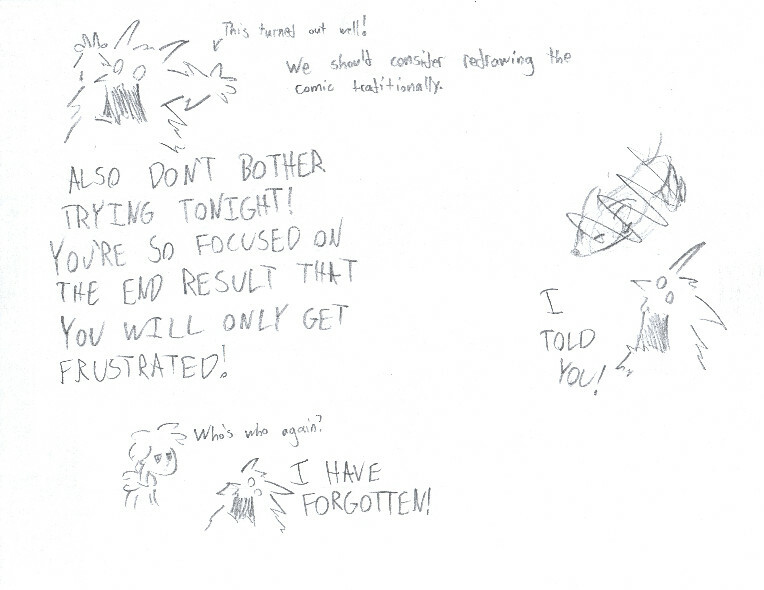 This turned out well!
We should consider redrawing the
comic traditionally.
ALSO DON'T BOTHER
TRYING TONIGHT!
YOU'RE SO FOCUSED ON
THE END RESULT THAT
YOU WILL ONLY GET
FRUSTRATED!
I
TOLD
YOU!
Who's who again?
I HAVE
FORGOTTEN!